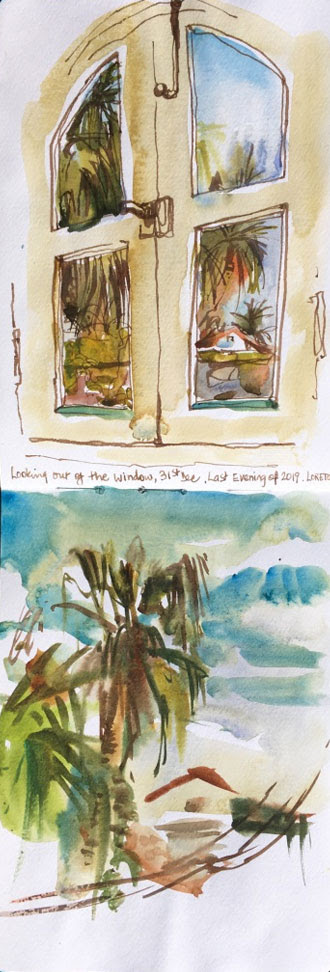 Looking out of the window, 31st Dec, Last Evening of 2019. LORETO